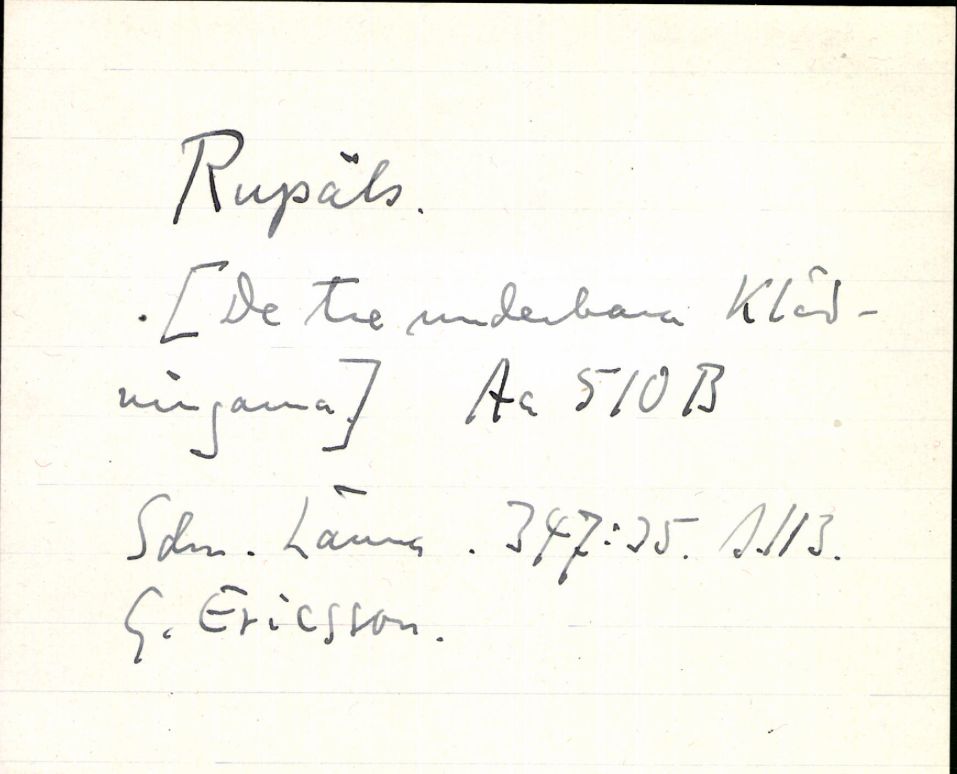 Rupäls.
. [De tre underbara kläd-
ningarna] Aa 510 B
Sdm. Länna. 347:35. S.113.
G. Ericsson.